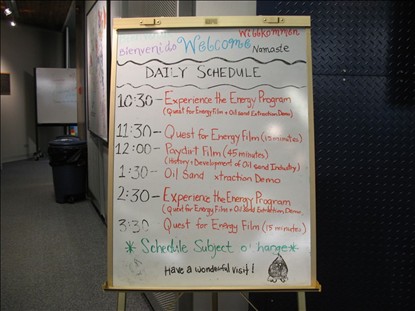 Willkommen
Bienvenido Welcome Namaste
DAILY SCHEDULE
10:30 - Experience the Energy Program
(Quest for Energy Film + Oil sand Extraction Demo)
11:30 - Quest for Energy Film (15 minutes)
12:00 - Paydirt Film (45 minutes)
(History + Development of Oil sand Industry)
1:30 - Oil Sand xtraction Demo
2:30 - Experience the Energy Program
(Quest for Energy Film + Oil sand Extraction Demo
3:30 Quest for Energy Film (15 minutes)
* Schedule Subject o hange *
Have a wonderful visit!